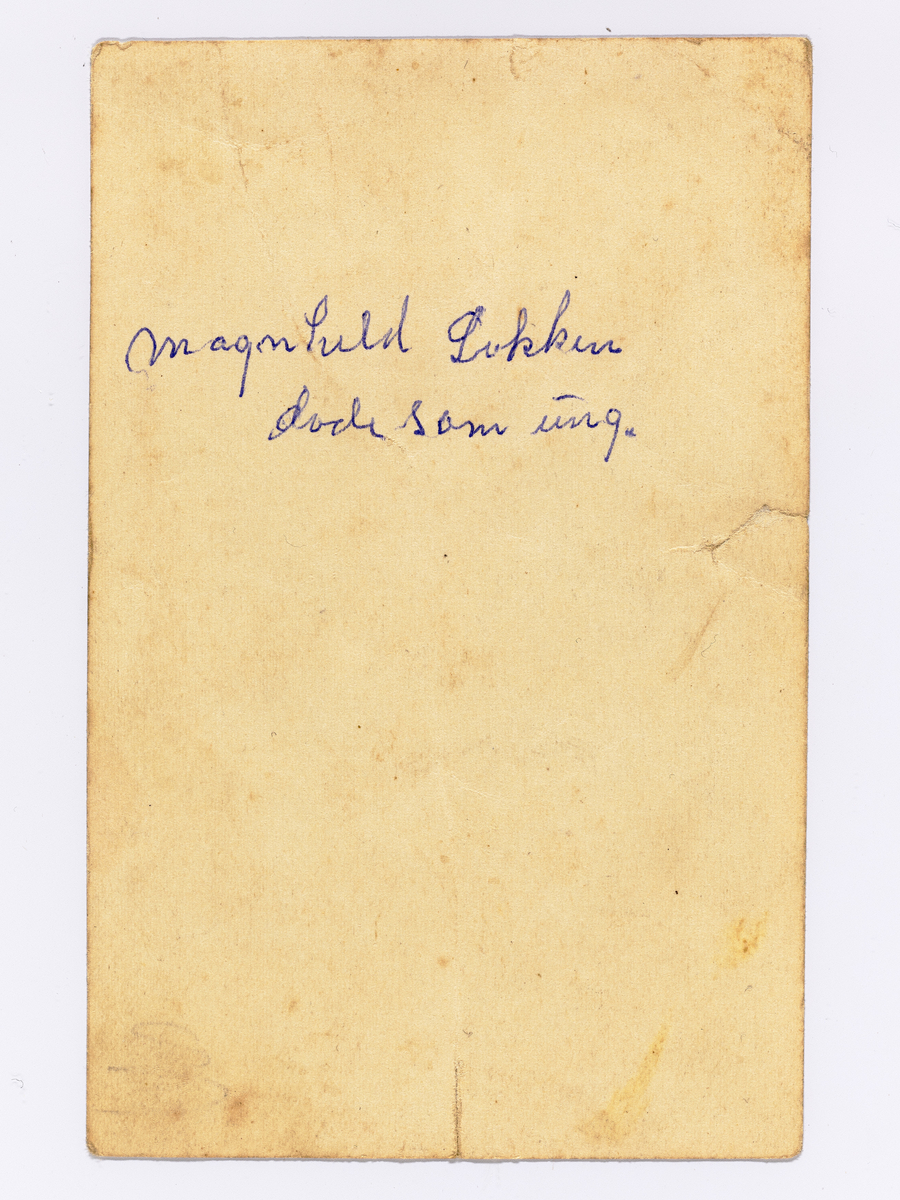 Magnhild Lokken
dode som ung.